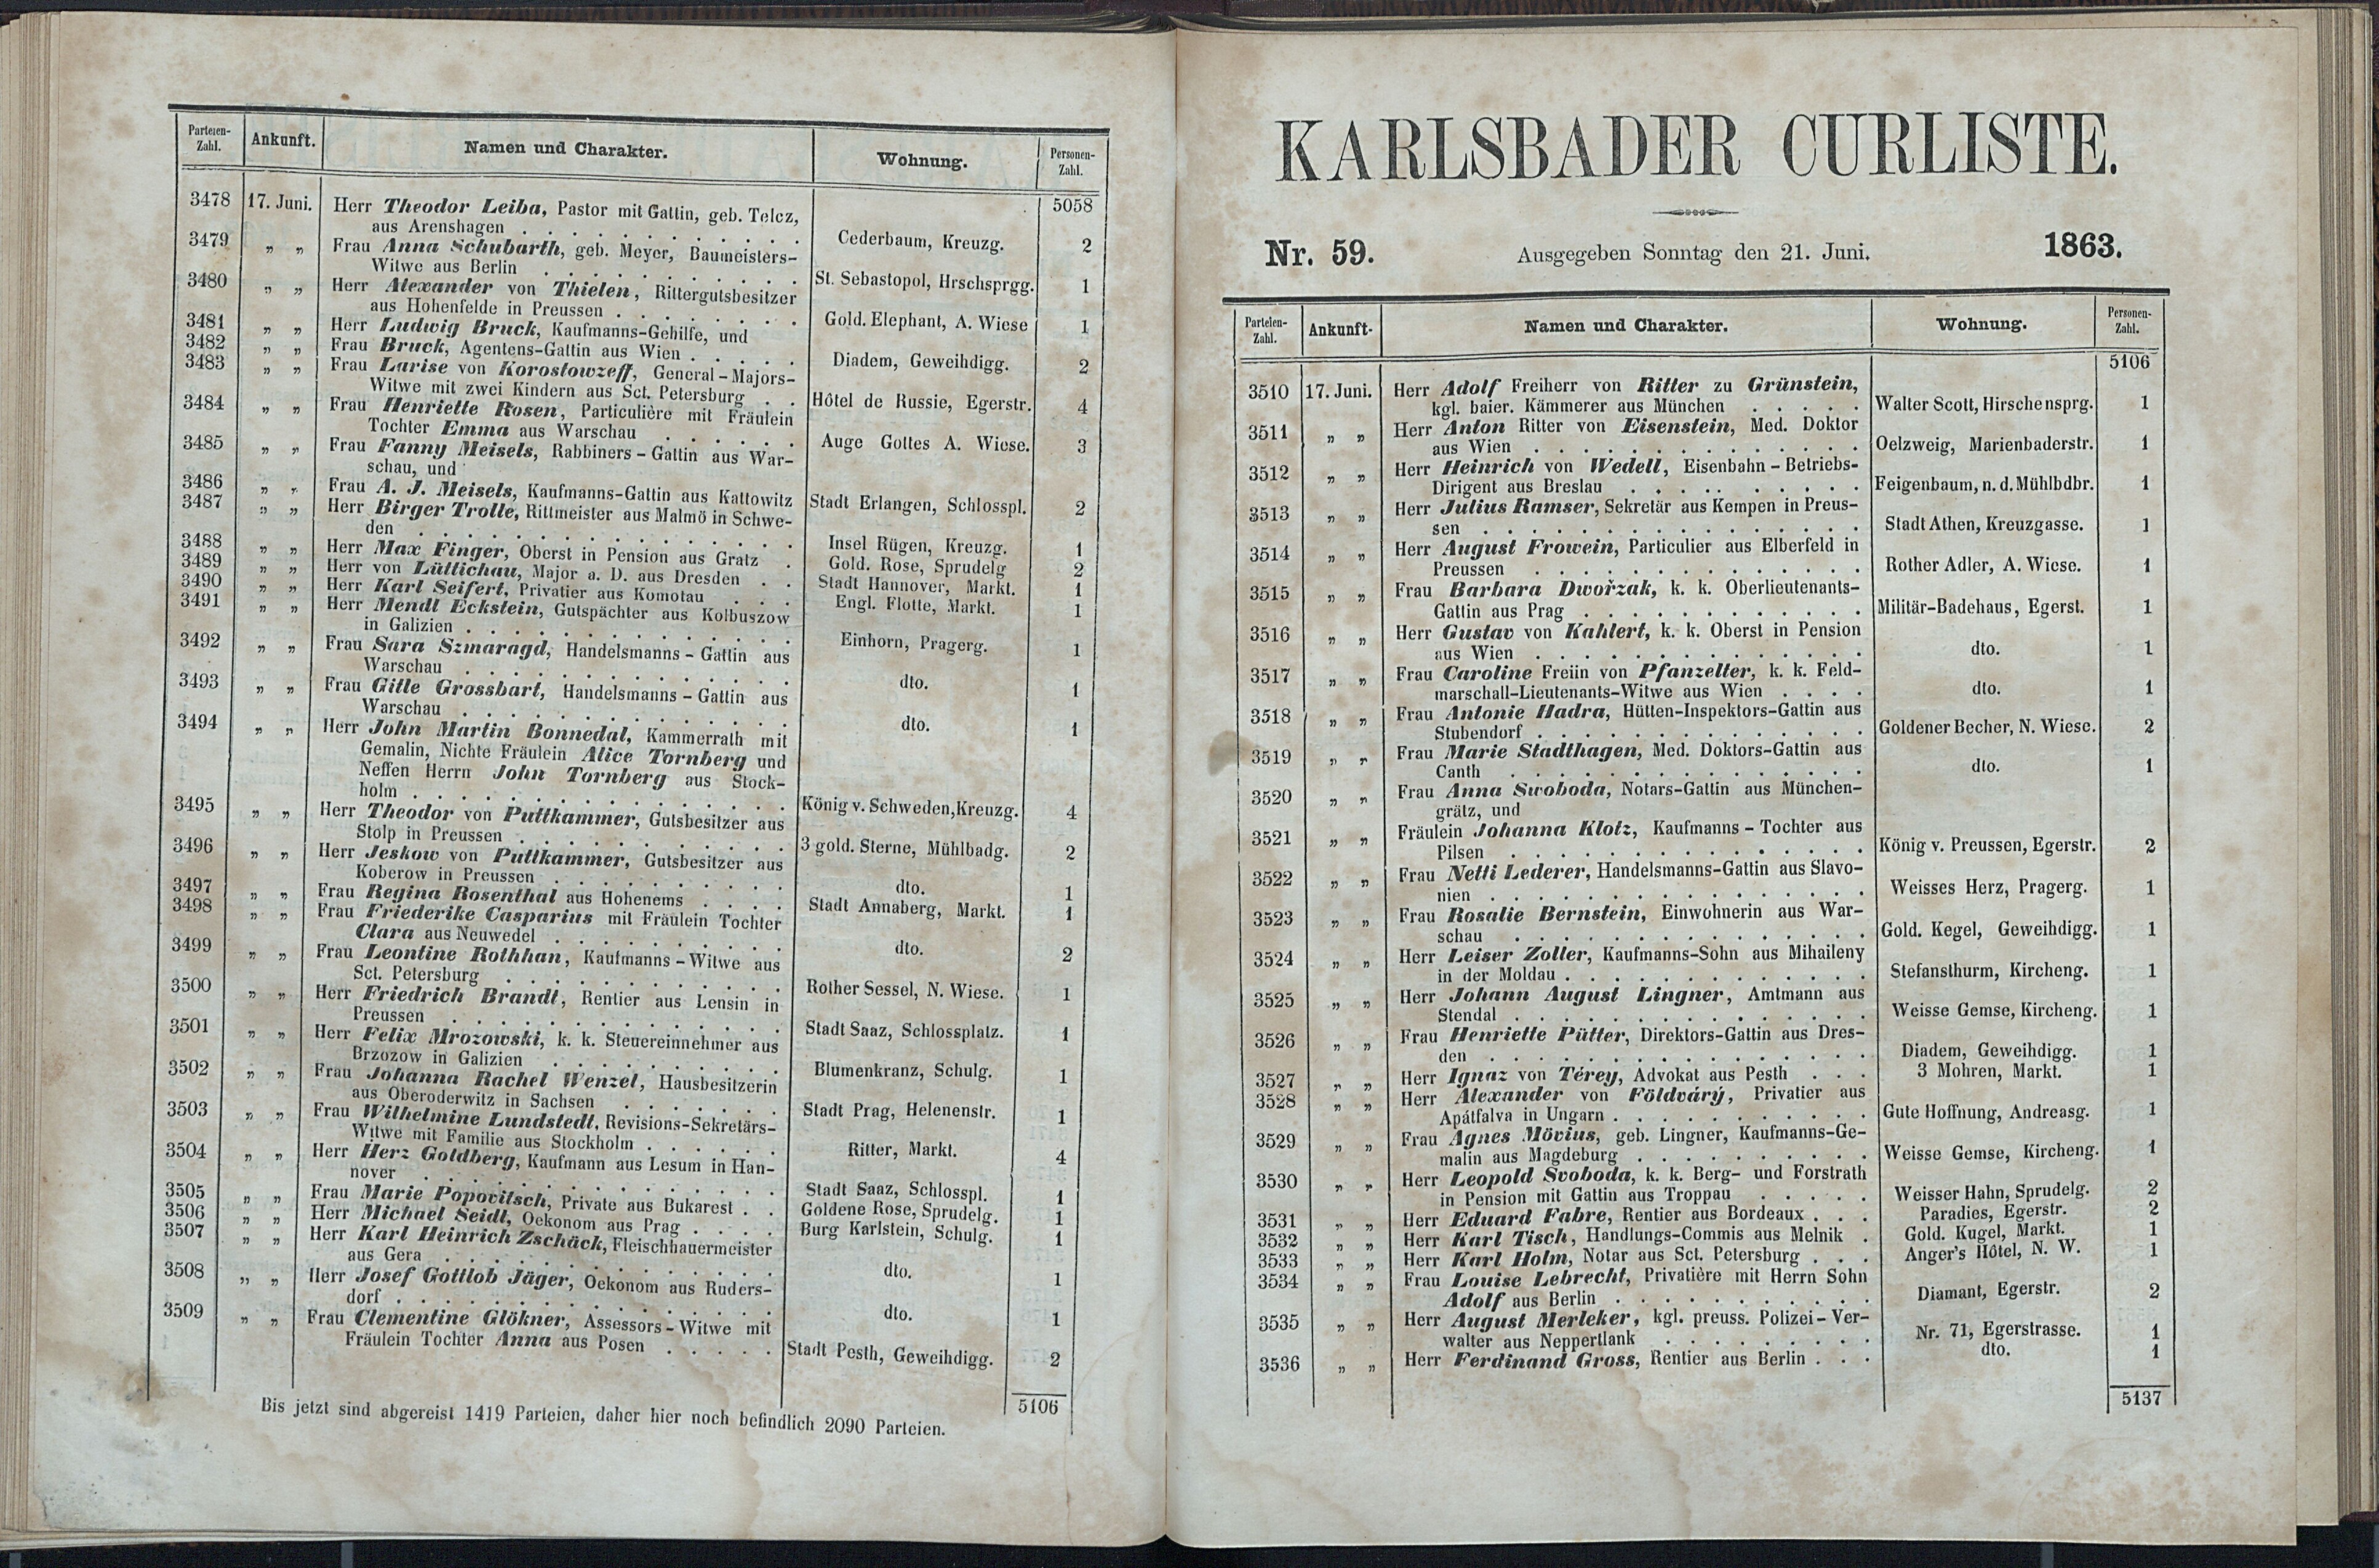 Parteien-Zahl. Ankunft. Namen und Charakter. Wohnung. Personen-Zahl.
5058
3478 17. Juni. Herr Theodor Leiba, Pastor mit Gattin, geb. Telcz,
aus Arenshagen . . . Cederbaum, Kreuzg. 2
3479 „ „ Frau Anna Schubarth, geb. Meyer, Baumeisters-
Witwe aus Berlin . . . St. Sebastopol, Hrschsprgg. 1
3480 „ „ Herr Alexander von Thielen, Rittergutsbesitzer
aus Hohenfelde in Preussen . . . Gold. Elephant, A. Wiese 1
3481 „ „ Herr Ludwig Bruck, Kaufmanns-Gehilfe, und
3482 „ „ Frau Bruck, Agentens-Gattin aus Wien . . . Diadem, Geweihdigg. 2
3483 „ „ Frau Larise von Korostowzeff, General-Majors-
Witwe mit zwei Kindern aus Sct. Petersburg . . Hôtel de Russie, Egerstr. 4
3484 „ „ Frau Henriette Rosen, Particulière mit Fräulein
Tochter Emma aus Warschau . . . Auge Gottes A. Wiese. 3
3485 „ „ Frau Fanny Meisels, Rabbiners-Gattin aus War-
schau, und
3486 „ „ Frau A. J. Meisels, Kaufmanns-Gattin aus Kattowitz Stadt Erlangen, Schlosspl. 2
3487 „ „ Herr Birger Trolle, Rittmeister aus Malmö in Schwe-
den . . . Insel Rügen, Kreuzg. 1
3488 „ „ Herr Max Finger, Oberst in Pension aus Gratz . Gold. Rose, Sprudelg 2
3489 „ „ Herr von Lüttichau, Major a. D. aus Dresden . . Stadt Hannover, Markt. 1
3490 „ „ Herr Karl Seifert, Privatier aus Komotau . . . Engl. Flotte, Markt. 1
3491 „ „ Herr Mendl Eckstein, Gutspächter aus Kolbuszow
in Galizien . . . Einhorn, Pragerg. 1
3492 „ „ Frau Sara Szmaragd, Handelsmanns-Gattin aus
Warschau . . . dto. 1
3493 „ „ Frau Gitle Grossbart, Handelsmanns-Gattin aus
Warschau . . . dto. 1
3494 „ „ Herr John Martin Bonnedal, Kammerrath mit
Gemalin, Nichte Fräulein Alice Tornberg und
Neffen Herrn John Tornberg aus Stock-
holm . . . König v. Schweden, Kreuzg. 4
3495 „ „ Herr Theodor von Puttkammer, Gutsbesitzer aus
Stolp in Preussen . . . 3 gold. Sterne, Mühlbadg. 2
3496 „ „ Herr Jeskow von Puttkammer, Gutsbesitzer aus
Koberow in Preussen . . . dto. 1
3497 „ „ Frau Regina Rosenthal aus Hohenems . . . Stadt Annaberg, Markt. 1
3498 „ „ Frau Friederike Casparius mit Fräulein Tochter
Clara aus Neuwedel . . . dto. 2
3499 „ „ Frau Leontine Rothhan, Kaufmanns-Witwe aus
Sct. Petersburg . . . Rother Sessel, N. Wiese. 1
3500 „ „ Herr Friedrich Brandt, Rentier aus Lensin in
Preussen . . . Stadt Saaz, Schlossplatz. 1
3501 „ „ Herr Felix Mrozowski, k. k. Steuereinnehmer aus
Brzozow in Galizien . . . Blumenkranz, Schulg. 1
3502 „ „ Frau Johanna Rachel Wenzel, Hausbesitzerin
aus Oberoderwitz in Sachsen . . . Stadt Prag, Helenenstr. 1
3503 „ „ Frau Wilhelmine Lundstedt, Revisions-Sekretärs-
Witwe mit Familie aus Stockholm . . . Ritter, Markt. 4
3504 „ „ Herr Herz Goldberg, Kaufmann aus Lesum in Han-
nover . . . Stadt Saaz, Schlosspl. 1
3505 „ „ Frau Marie Popovitsch, Private aus Bukarest . . Goldene Rose, Sprudelg. 1
3506 „ „ Herr Michael Seidl, Oekonom aus Prag . . . Burg Karlstein, Schulg. 1
3507 „ „ Herr Karl Heinrich Zschäck, Fleischhauermeister
aus Gera . . . dto. 1
3508 „ „ Herr Josef Gottlob Jäger, Oekonom aus Ruders-
dorf . . . dto. 1
3509 „ „ Frau Clementine Glökner, Assessors-Witwe mit
Fräulein Tochter Anna aus Posen . . . Stadt Pesth, Geweihdigg. 2
5106
Bis jetzt sind abgereist 1419 Parteien, daher hier noch befindlich 2090 Parteien.
KARLSBADER CURLISTE.
Nr. 59. Ausgegeben Sonntag den 21. Juni. 1863.
Parteien-Zahl. Ankunft. Namen und Charakter. Wohnung. Personen-Zahl.
5106
3510 17. Juni. Herr Adolf Freiherr von Ritter zu Grünstein,
kgl. baier. Kämmerer aus München . . . Walter Scott, Hirschensprg. 1
3511 „ „ Herr Anton Ritter von Eisenstein, Med. Doktor
aus Wien . . . Oelzweig, Marienbaderstr. 1
3512 „ „ Herr Heinrich von Wedell, Eisenbahn-Betriebs-
Dirigent aus Breslau . . . Feigenbaum, n. d. Mühlbdbr. 1
3513 „ „ Herr Julius Ramser, Sekretär aus Kempen in Preus-
sen . . . Stadt Athen, Kreuzgasse. 1
3514 „ „ Herr August Frowein, Particulier aus Elberfeld in
Preussen . . . Rother Adler, A. Wiese. 1
3515 „ „ Frau Barbara Dwořzak, k. k. Oberlieutenants-
Gattin aus Prag . . . Militär-Badehaus, Egerst. 1
3516 „ „ Herr Gustav von Kahlert, k. k. Oberst in Pension
aus Wien . . . dto. 1
3517 „ „ Frau Caroline Freiin von Pfanzelter, k. k. Feld-
marschall-Lieutenants-Witwe aus Wien . . . dto. 1
3518 „ „ Frau Antonie Hadra, Hütten-Inspektors-Gattin aus
Stubendorf . . . Goldener Becher, N. Wiese. 2
3519 „ „ Frau Marie Stadthagen, Med. Doktors-Gattin aus
Canth . . . dto. 1
3520 „ „ Frau Anna Swoboda, Notars-Gattin aus München-
grätz, und
3521 „ „ Fräulein Johanna Klotz, Kaufmanns-Tochter aus
Pilsen . . . König v. Preussen, Egerstr. 2
3522 „ „ Frau Netti Lederer, Handelsmanns-Gattin aus Slavo-
nien . . . Weisses Herz, Pragerg. 1
3523 „ „ Frau Rosalie Bernstein, Einwohnerin aus War-
schau . . . Gold. Kegel, Geweihdigg. 1
3524 „ „ Herr Leiser Zoller, Kaufmanns-Sohn aus Mihaileny
in der Moldau . . . Stefansthurm, Kircheng. 1
3525 „ „ Herr Johann August Lingner, Amtmann aus
Stendal . . . Weisse Gemse, Kircheng. 1
3526 „ „ Frau Henriette Pütter, Direktors-Gattin aus Dres-
den . . . Diadem, Geweihdigg. 1
3527 „ „ Herr Ignaz von Térey, Advokat aus Pesth . . . 3 Mohren, Markt. 1
3528 „ „ Herr Alexander von Földvárÿ, Privatier aus
Apátfalva in Ungarn . . . Gute Hoffnung, Andreasg. 1
3529 „ „ Frau Agnes Mövius, geb. Lingner, Kaufmanns-Ge-
malin aus Magdeburg . . . Weisse Gemse, Kircheng. 1
3530 „ „ Herr Leopold Svoboda, k. k. Berg- und Forstrath
in Pension mit Gattin aus Troppau . . . Weisser Hahn, Sprudelg. 2
3531 „ „ Herr Eduard Fabre, Rentier aus Bordeaux . . . Paradies, Egerstr. 2
3532 „ „ Herr Karl Tisch, Handlungs-Commis aus Melnik . Gold. Kugel, Markt. 1
3533 „ „ Herr Karl Holm, Notar aus Sct. Petersburg . . . Anger's Hôtel, N. W. 1
3534 „ „ Frau Louise Lebrecht, Privatière mit Herrn Sohn
Adolf aus Berlin . . . Diamant, Egerstr. 2
3535 „ „ Herr August Merleker, kgl. preuss. Polizei-Ver-
walter aus Neppertlank . . . Nr. 71, Egerstrasse. 1
3536 „ „ Herr Ferdinand Gross, Rentier aus Berlin . . . dto. 1
5137